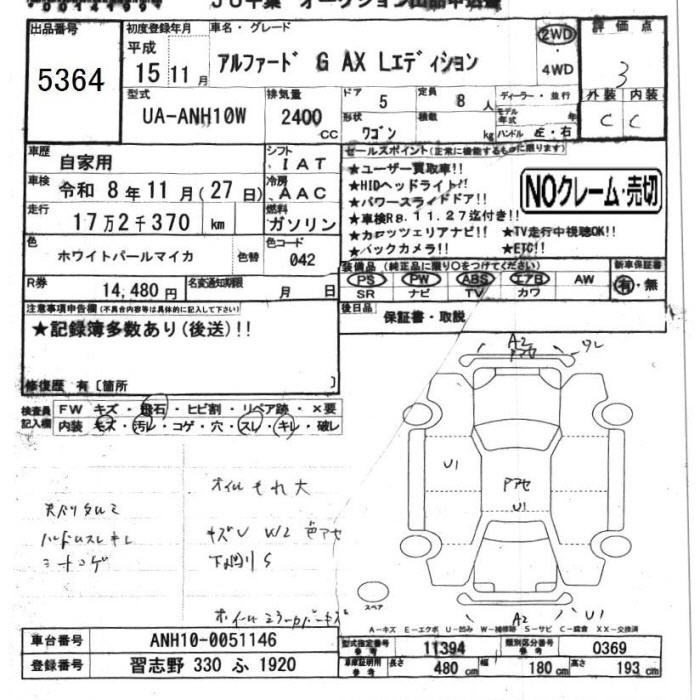 JU千葉 オークション出品申込書
出品番号
5364
初度登録年月
平成
15年11月
車名・グレード
アルファード G AX Lエディション
2WD
・
4WD
評価点
3
外装 内装
C C
型式
UA-ANH10W
排気量
2400
cc
ドア
5
定員
8人
形状
ワゴン
積載
kg
ディーラー・並行
モデル年式 年
ハンドル 左・右
車歴
自家用
シフト
IAT
車検
令和 8年11月(27日)
冷房
AAC
走行
17万2千370 km
燃料
ガソリン
色
ホワイトパールマイカ
色替
色コード
042
R券
14,480円
名変通知期限
月 日
セールスポイント(正常に機能するものに限ります)
★ユーザー買取車!!
★HIDヘッドライト!!
★パワースライドドア!!
★車検R8.11.27迄付き!!
★カロッツェリアナビ!! ★TV走行中視聴OK!!
★バックカメラ!! ★ETC!!
NOクレーム・売切
装備品(純正品に限り○をつけてください)
PS PW ABS エアB AW
SR ナビ TV カワ
新車保証書
有・無
後日品
保証書・取説
注意事項申告欄(不具合内容等は具体的に記入して下さい)
★記録簿多数あり(後送)!!
修復歴 有〔箇所 〕
検査員記入欄
FW キズ・飛石・ヒビ割・リペア跡・×要
内装 キズ・汚レ・コゲ・穴・スレ・キレ・破レ
オイルもれ大
天バリタルミ
ハンドルスレキレ
シートコゲ
キズU W2 色アセ
下廻りS
A2
アセ
ワレ
U1
アセ
U1
A2
U1
スペア
A-キズ E-エクボ U-凹み W-補修跡 S-サビ C-腐食 XX-交換済
車台番号
ANH10-0051146
登録番号
習志野 330 ふ 1920
型式指定番号
参考
11394
類別区分番号
参考
0369
車庫証明用
参考
長さ
480 cm
幅
180 cm
高さ
193 cm